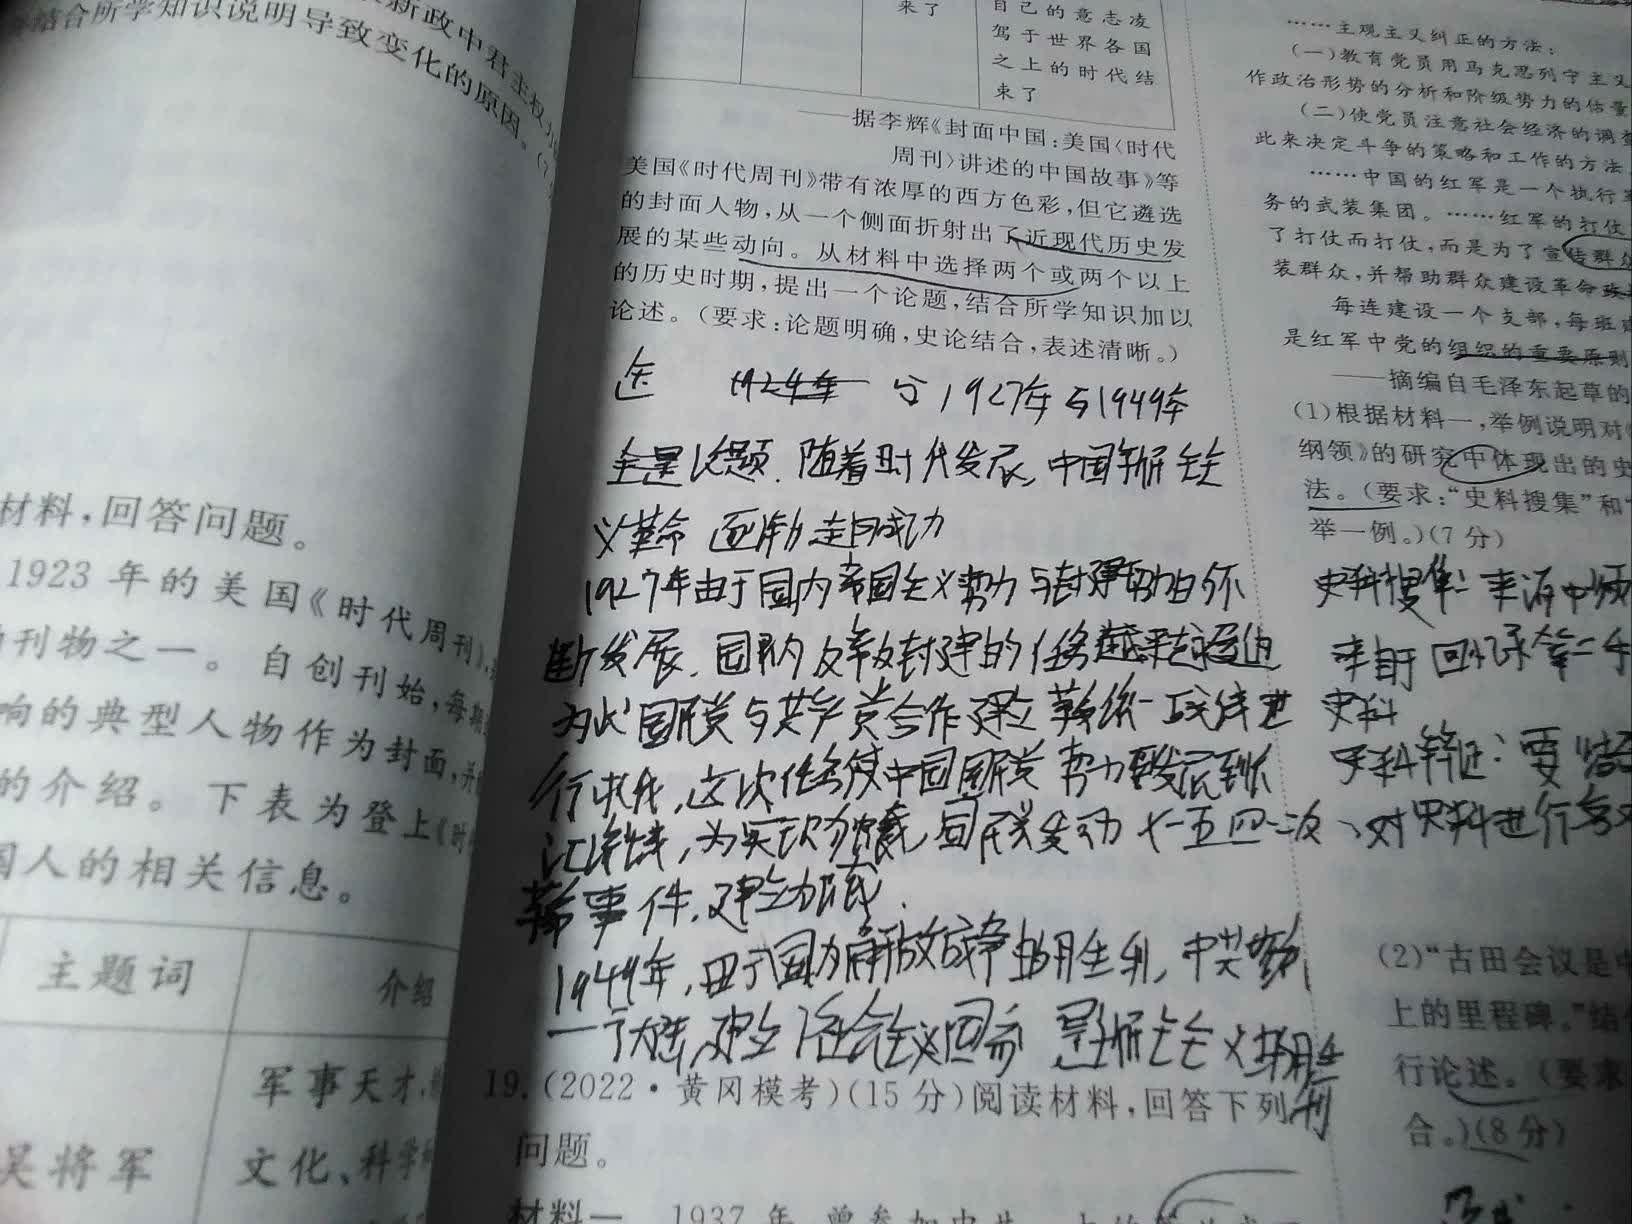 新政中君主权
结合所学知识说明导致变化的原因。(7
材料,回答问题。
1923年的美国《时代周刊》,
刊物之一。自创刊始,每期
响的典型人物作为封面,并
的介绍。下表为登上《时
国人的相关信息。
主题词
介绍
吴将军
军事天才,
文化、科学
来了
自己的意志凌
驾于世界各国
之上的时代结
束了
——据李辉《封面中国:美国〈时代
周刊〉讲述的中国故事》等
美国《时代周刊》带有浓厚的西方色彩,但它遴选
的封面人物,从一个侧面折射出了近现代历史发
展的某些动向。从材料中选择两个或两个以上
的历史时期,提出一个论题,结合所学知识加以
论述。(要求:论题明确,史论结合,表述清晰。)
1924年 与1927年与1949年
论题.随着时代发展,中国新民主主
义革命逐渐走向成功
1927年由于国内帝国主义势力与封建势力的不
断发展,国内反帝反封建的任务越来越迫
为此国民党与共产党合作建立革命统一战线进
行北伐,这次任务使中国国民党势力发展到长
江流域,为实现,国民党发动七一五四一二反
革命事件,建立
1949年,由于国内解放战争的胜利,中共
一个大陆,建立社会主义国家 是新民主主义的胜
利
19.(2022·黄冈模考)(15分)阅读材料,回答下列
问题。
材料一 1937年,曾参加中共
……主观主义纠正的方法:
(一)教育党员用马克思列宁主义
作政治形势的分析和阶级势力的估量
(二)使党员注意社会经济的调查
此来决定斗争的策略和工作的方法
……中国的红军是一个执行
务的武装集团。……红军的打仗
了打仗而打仗,而是为了宣传群众
装群众,并帮助群众建设革命政
每连建设一个支部,每班
是红军中党的组织的重要原则
——摘编自毛泽东起草的
(1)根据材料一,举例说明对
纲领》的研究中体现出的史
法。(要求:“史料搜集”和“
举一例。)(7分)
史料搜集:来源中
来自于回忆录等二手
史料
史料辩证:要结合
对史料进行多
(2)“古田会议是中
上的里程碑。”结
行论述。(要求
合。)(8分)